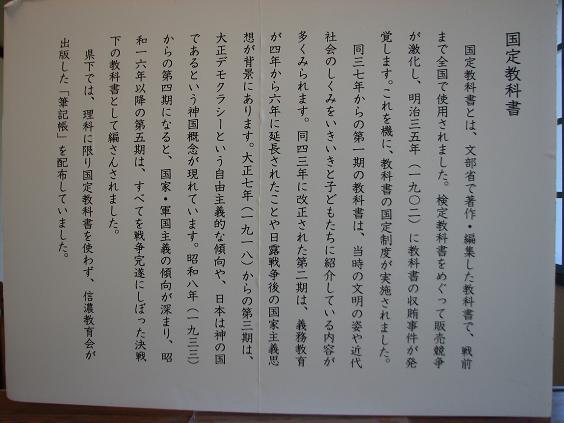 国定教科書
国定教科書とは、文部省で著作・編集した教科書で、戦前
まで全国で使用されました。検定教科書をめぐって販売競争
が激化し、明治三五年（一九〇二）に教科書の収賄事件が発
覚します。これを機に、教科書の国定制度が実施されました。
同三七年からの第一期の教科書は、当時の文明の姿や近代
社会のしくみをいきいきと子どもたちに紹介している内容が
多くみられます。同四三年に改正された第二期は、義務教育
が四年から六年に延長されたことや日露戦争後の国家主義思
想が背景にあります。大正七年（一九一八）からの第三期は、
大正デモクラシーという自由主義的な傾向や、日本は神の国
であるという神国概念が現れています。昭和八年（一九三三）
からの第四期になると、国家・軍国主義の傾向が深まり、昭
和一六年以降の第五期は、すべてを戦争完遂にしぼった決戦
下の教科書として編さんされました。
県下では、理科に限り国定教科書を使わず、信濃教育会が
出版した「筆記帳」を配布していました。